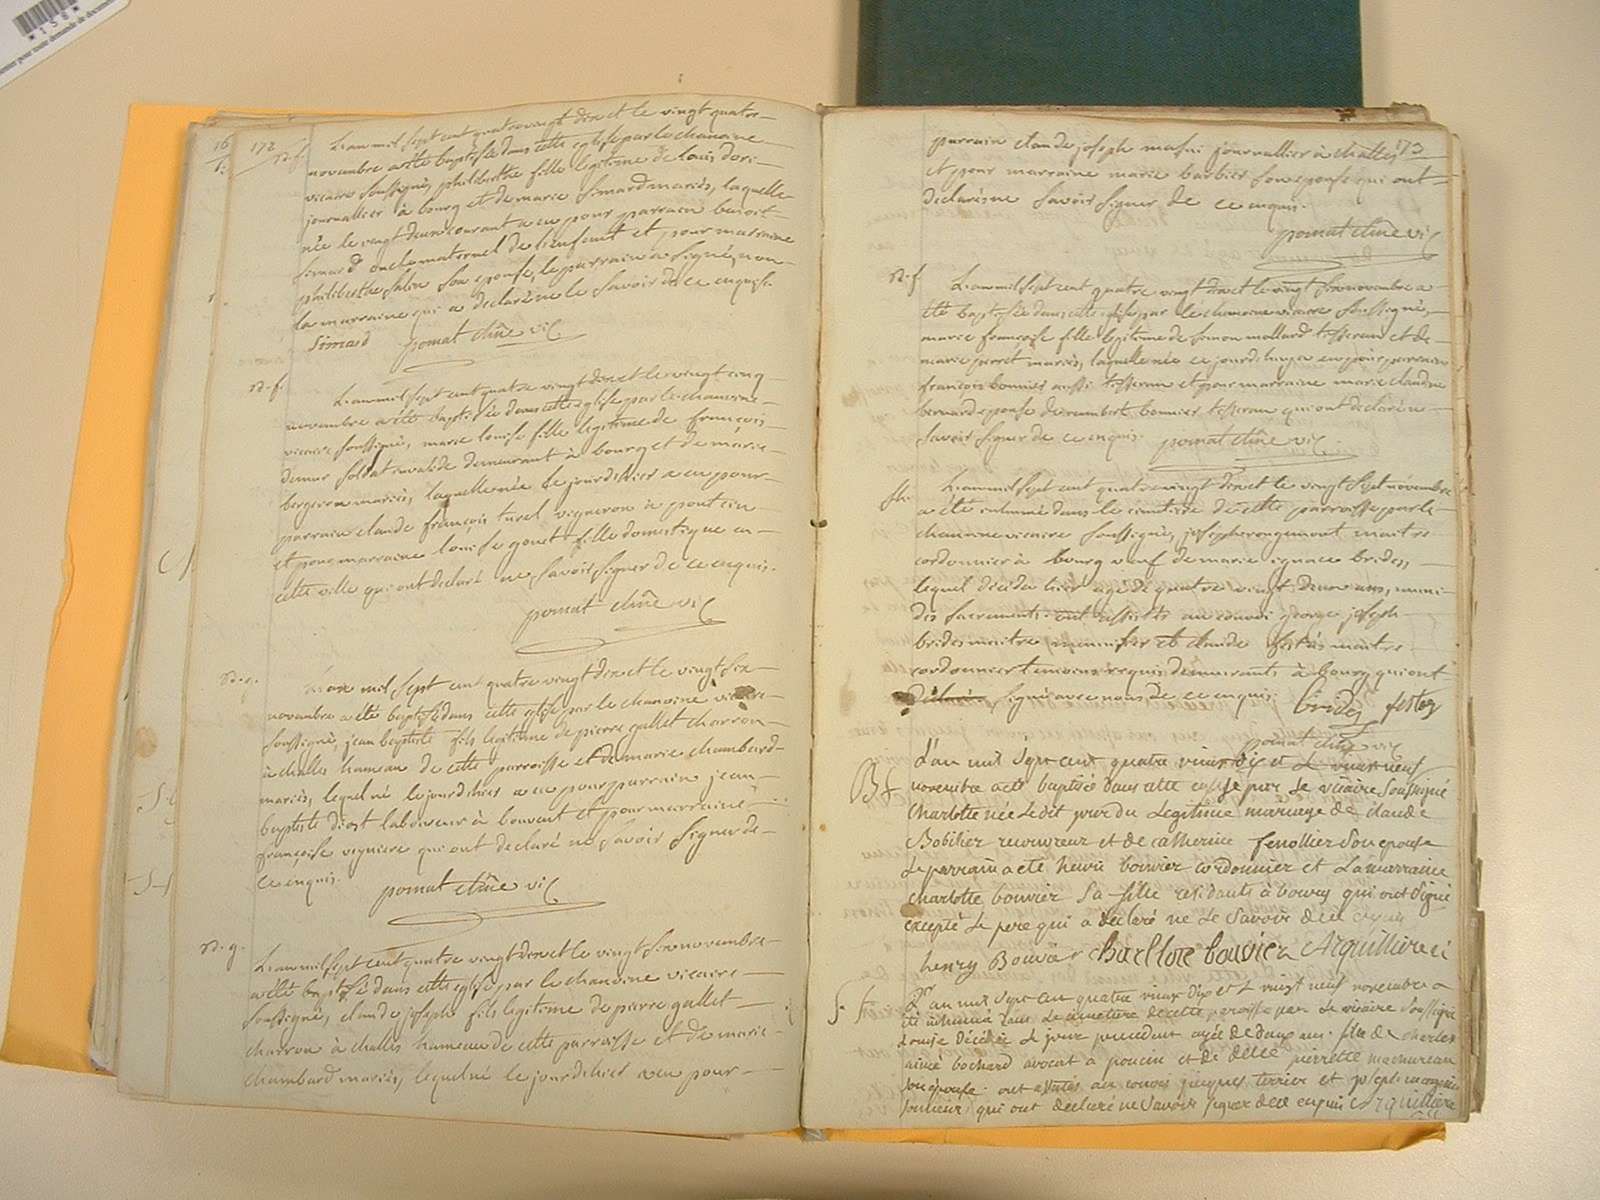 172
B. f.
L'an mil sept cent quatre vingt dix et le vingt quatre
novembre a été baptisée dans cette eglise par le chanoine
vicaire soussigné, philiberthe fille legitime de louis
journallier à bourg et de marie simard mariés, laquelle
née le vingt deux courant a eu pour parrain benoit
simard oncle maternel de l'enfant et pour marraine
philiberthe son epouse, le parrain a signé, non
la marraine qui a declaré ne le savoir de ce enquise.
simard pomat chne vic
B. f.
L'an mil sept cent quatre vingt dix et le vingt cinq
novembre a été baptisée dans cette eglise par le chanoine
vicaire soussigné, marie louise fille legitime de françois
soldat invalide demeurant à bourg et de marie
bergeron mariés, laquelle née le jour d'hier a eu pour
parrain claude françois turel vigneron à
et pour marraine louise gonet fille domestique en
cette ville qui ont declaré ne savoir signer de ce enquis.
pomat chne vic
B. g.
L'an mil sept cent quatre vingt dix et le vingt six
novembre a été baptisé dans cette eglise par le chanoine vicaire
soussigné, jean baptiste fils legitime de pierre gallet charron
à challes hameau de cette parroisse et de marie chambard
mariés, lequel né le jour d'hier a eu pour parrain jean
baptiste laboureur à bouvent et pour marraine
françoise qui ont declaré ne savoir signer de
ce enquis. pomat chne vic
B. g.
L'an mil sept cent quatre vingt dix et le vingt six novembre
a été baptisé dans cette eglise par le chanoine vicaire
soussigné, claude joseph fils legitime de pierre gallet
charron à challes hameau de cette parroisse et de marie
chambard mariés, lequel né le jour d'hier a eu pour
parrain claude joseph journallier à challes
et pour marraine marie barbier son epouse qui ont
declaré ne savoir signer de ce enquis.
pomat chne vic
B. f.
L'an mil sept cent quatre vingt dix et le vingt six novembre a
été baptisée dans cette eglise par le chanoine vicaire soussigné,
marie françoise fille legitime de simon mollard tisseran et de
marie perret mariés, laquelle née ce jourd'huy a eu pour parrain
françois bonnier aussi tisseran et pour marraine marie claudine
bernard epouse de rambert bonnier tisseran qui ont declaré ne
savoir signer de ce enquis. pomat chne vic.
L'an mil sept cent quatre vingt dix et le vingt sept novembre
a été inhumé dans le cimetiere de cette parroisse par le
chanoine vicaire soussigné, joseph maitre
cordonnier à bourg veuf de marie ignace brides,
lequel décédé hier agé de quatre vingt deux ans, muni
des sacrements. ont assistés au convoi george joseph
brides maitre menuisier et claude festas maitre
cordonnier temoins requis demeurants à bourg qui ont
declaré signé avec nous de ce enquis. brides festas
pomat chne vic
B f
L'an mil sept cent quatre vingt dix et le vingt neuf
novembre a été baptisée dans cette eglise par le vicaire soussigné
Charlotte née ledit jour du légitime mariage de claude
Bobilier et de catherine fenollier son epouse
Le parrain a été henri bouvier cordonnier et la marraine
charlotte bouvier sa fille residants à bourg qui ont signé
excepté le pere qui a declaré ne le savoir de ce enquis
henry Bouvier Charllote bouvier Arquilliere
S. f
L'an mil sept cent quatre vingt dix et le vingt neuf novembre a
été inhumée dans le cimetiere de cette paroisse par le vicaire soussigné
Louise décédée le jour precedent agée de deux ans. fille de charles
aimé bochard avocat à poncin et de delle pierrette
son épouse. ont assistés au convoi jacques terrier et joseph
qui ont declaré ne savoir signer de ce enquis Arquilliere